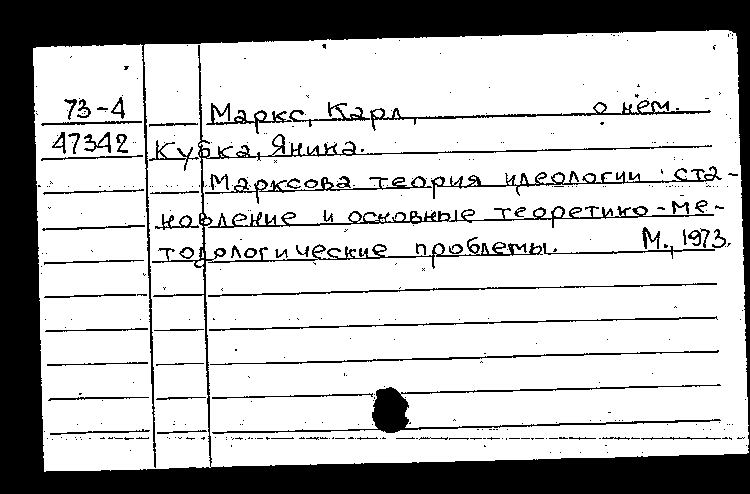 73-4 Маркс, Карл, о нем.
47342 Кубка, Янина.
Марксова теория идеологии : ста-
новление и основные теоретико-ме-
тодологические проблемы. М., 1973.